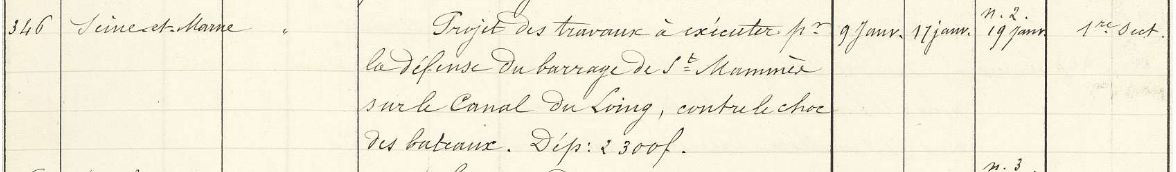 346 Seine-et-Marne " Projet des travaux à exécuter pr 9 Janv. 17 janv. n. 2. 19 Janv. 1re Sect.
la défense du barrage de St Mammès
sur le Canal du Loing, contre le choc
des bateaux. Dép: 2300f.
n. 3